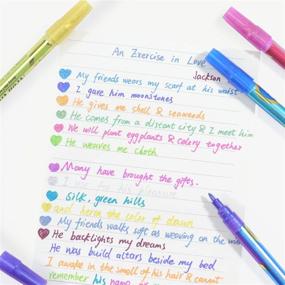 An Zxercise in Love
Jackson
My friends wears my scarf at his waist
I gave him moonstones
He gives me shell & seaweeds
He comes from a discant city & I meet him
We will plant eggplants & celery together
He weaves me cloth
Many have brought the gifts.
I for his pleasure
Silk, green hills
and heron the color of dawn
My friends walks soft as weaving on the wind
He backlights my dreams
He was build altars beside my bed
I awake in the smell of his hair & cannot
remember his